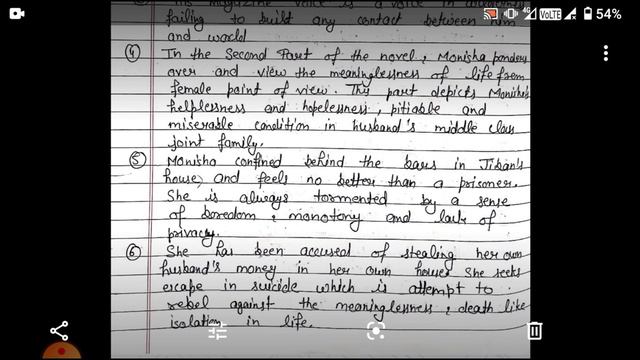 magazine voice is a voice in
failing to build any contact between him
and world
④ In the Second Part of the novel, Monisha ponders
over and view the meaninglessness of life from
female point of view. This part depicts Monisha's
helplessness and hopelessness, pitiable and
miserable condition in husband's middle class
joint family.
⑤ Monisha confined behind the bars in Jiban's
house, and feels no better than a prisoner.
She is always tormented by a sense
of boredom, monotony and lack of
privacy.
⑥ She has been accused of stealing her own
husband's money in her own house. She seeks
escape in suicide which is attempt to
rebel against the meaninglessness, death like
isolation in life.
4G VoLTE 54%